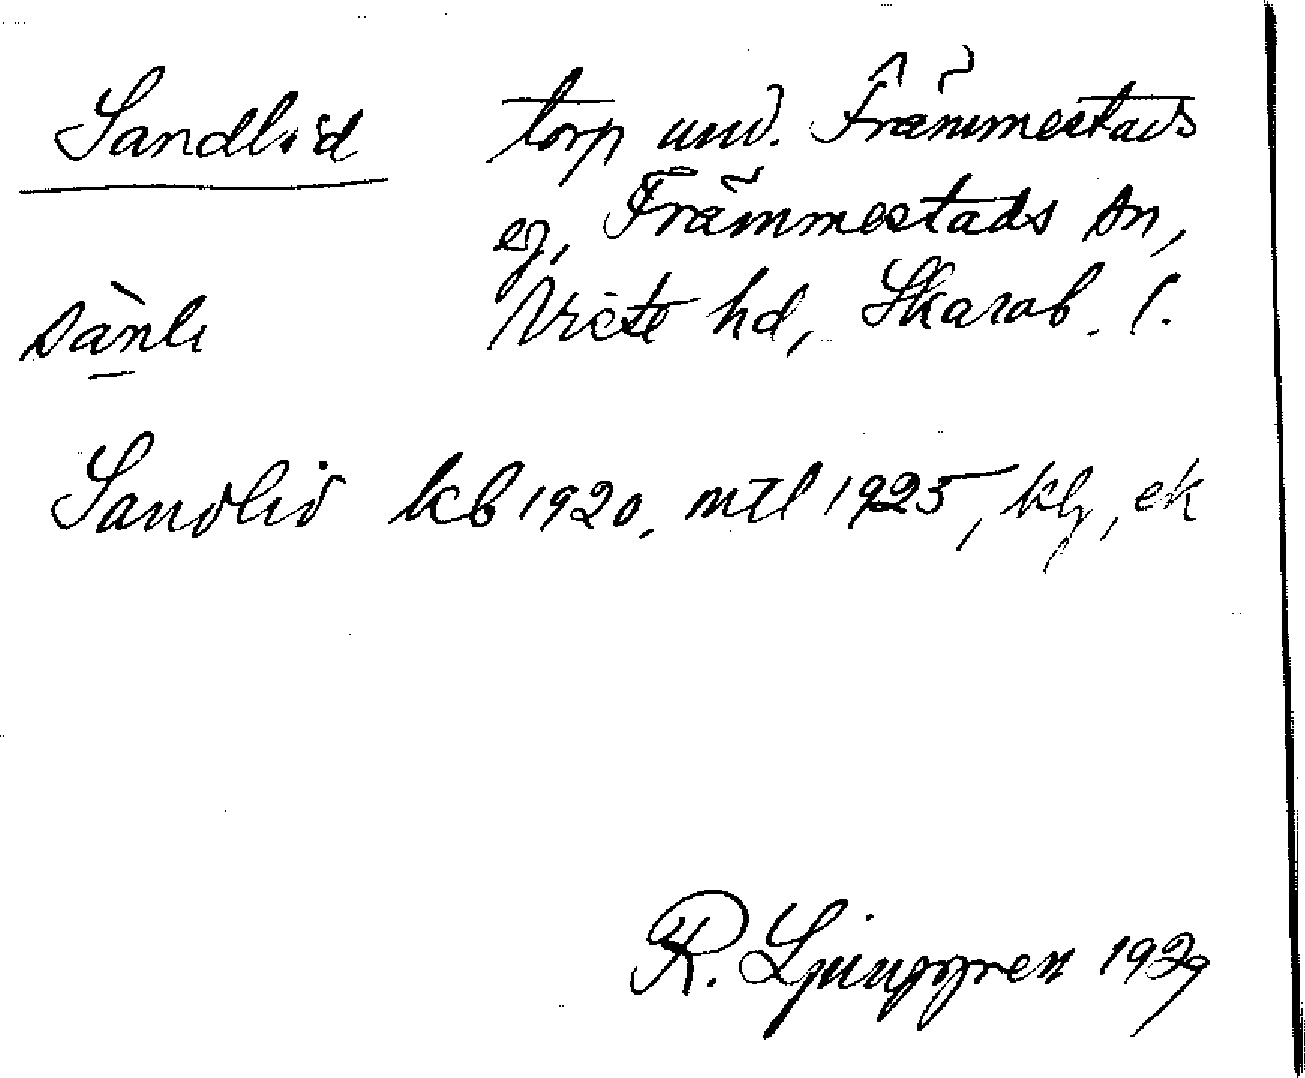 Sandlid torp und. Främmestads
eg, Främmestads sn,
sànli Viste hd, Skarab. l.
Sandlid kb 1920, mtl 1925, klj, ek
R. Ljunggren 1929